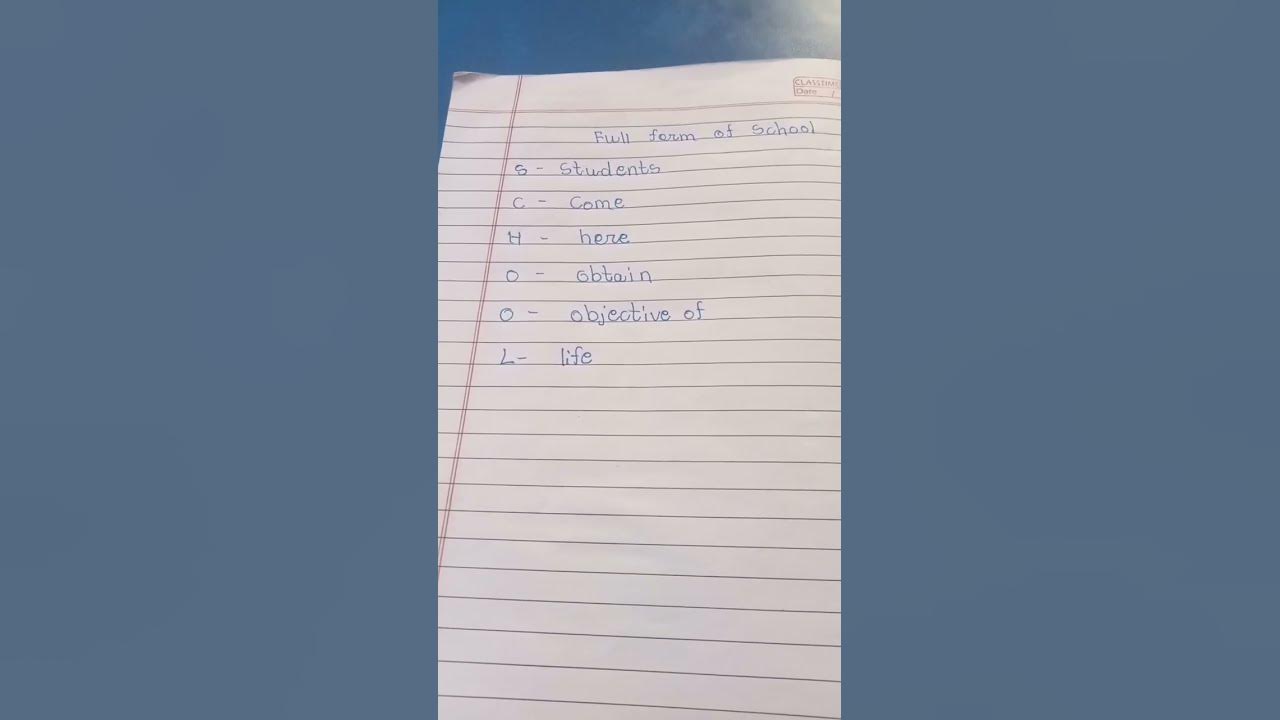 CLASSTIME
Date /
Full form of School
S - Students
C - Come
H - here
O - obtain
O - objective of
L - life